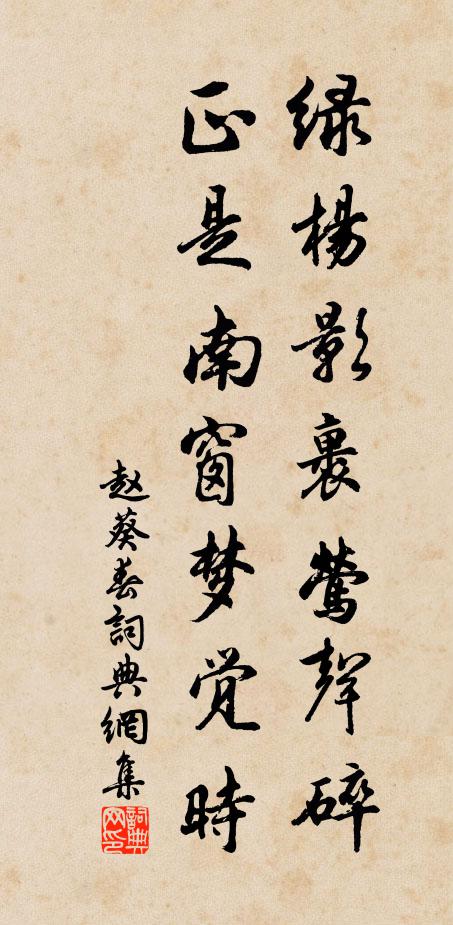 绿楊影裏莺聲碎
正是南窗梦觉時
赵葵春詞典網集
詞典网印